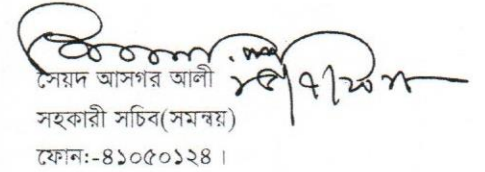 সৈয়দ আসগর আলী
সহকারী সচিব(সমন্বয়)
ফোন:-৪১০৫০১২৪।